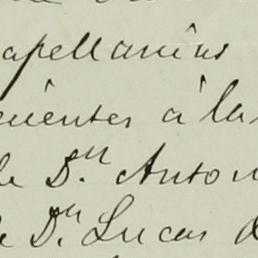 apellanias
cuentes à la
de D.ⁿ Anton
de D.ⁿ Lucas d